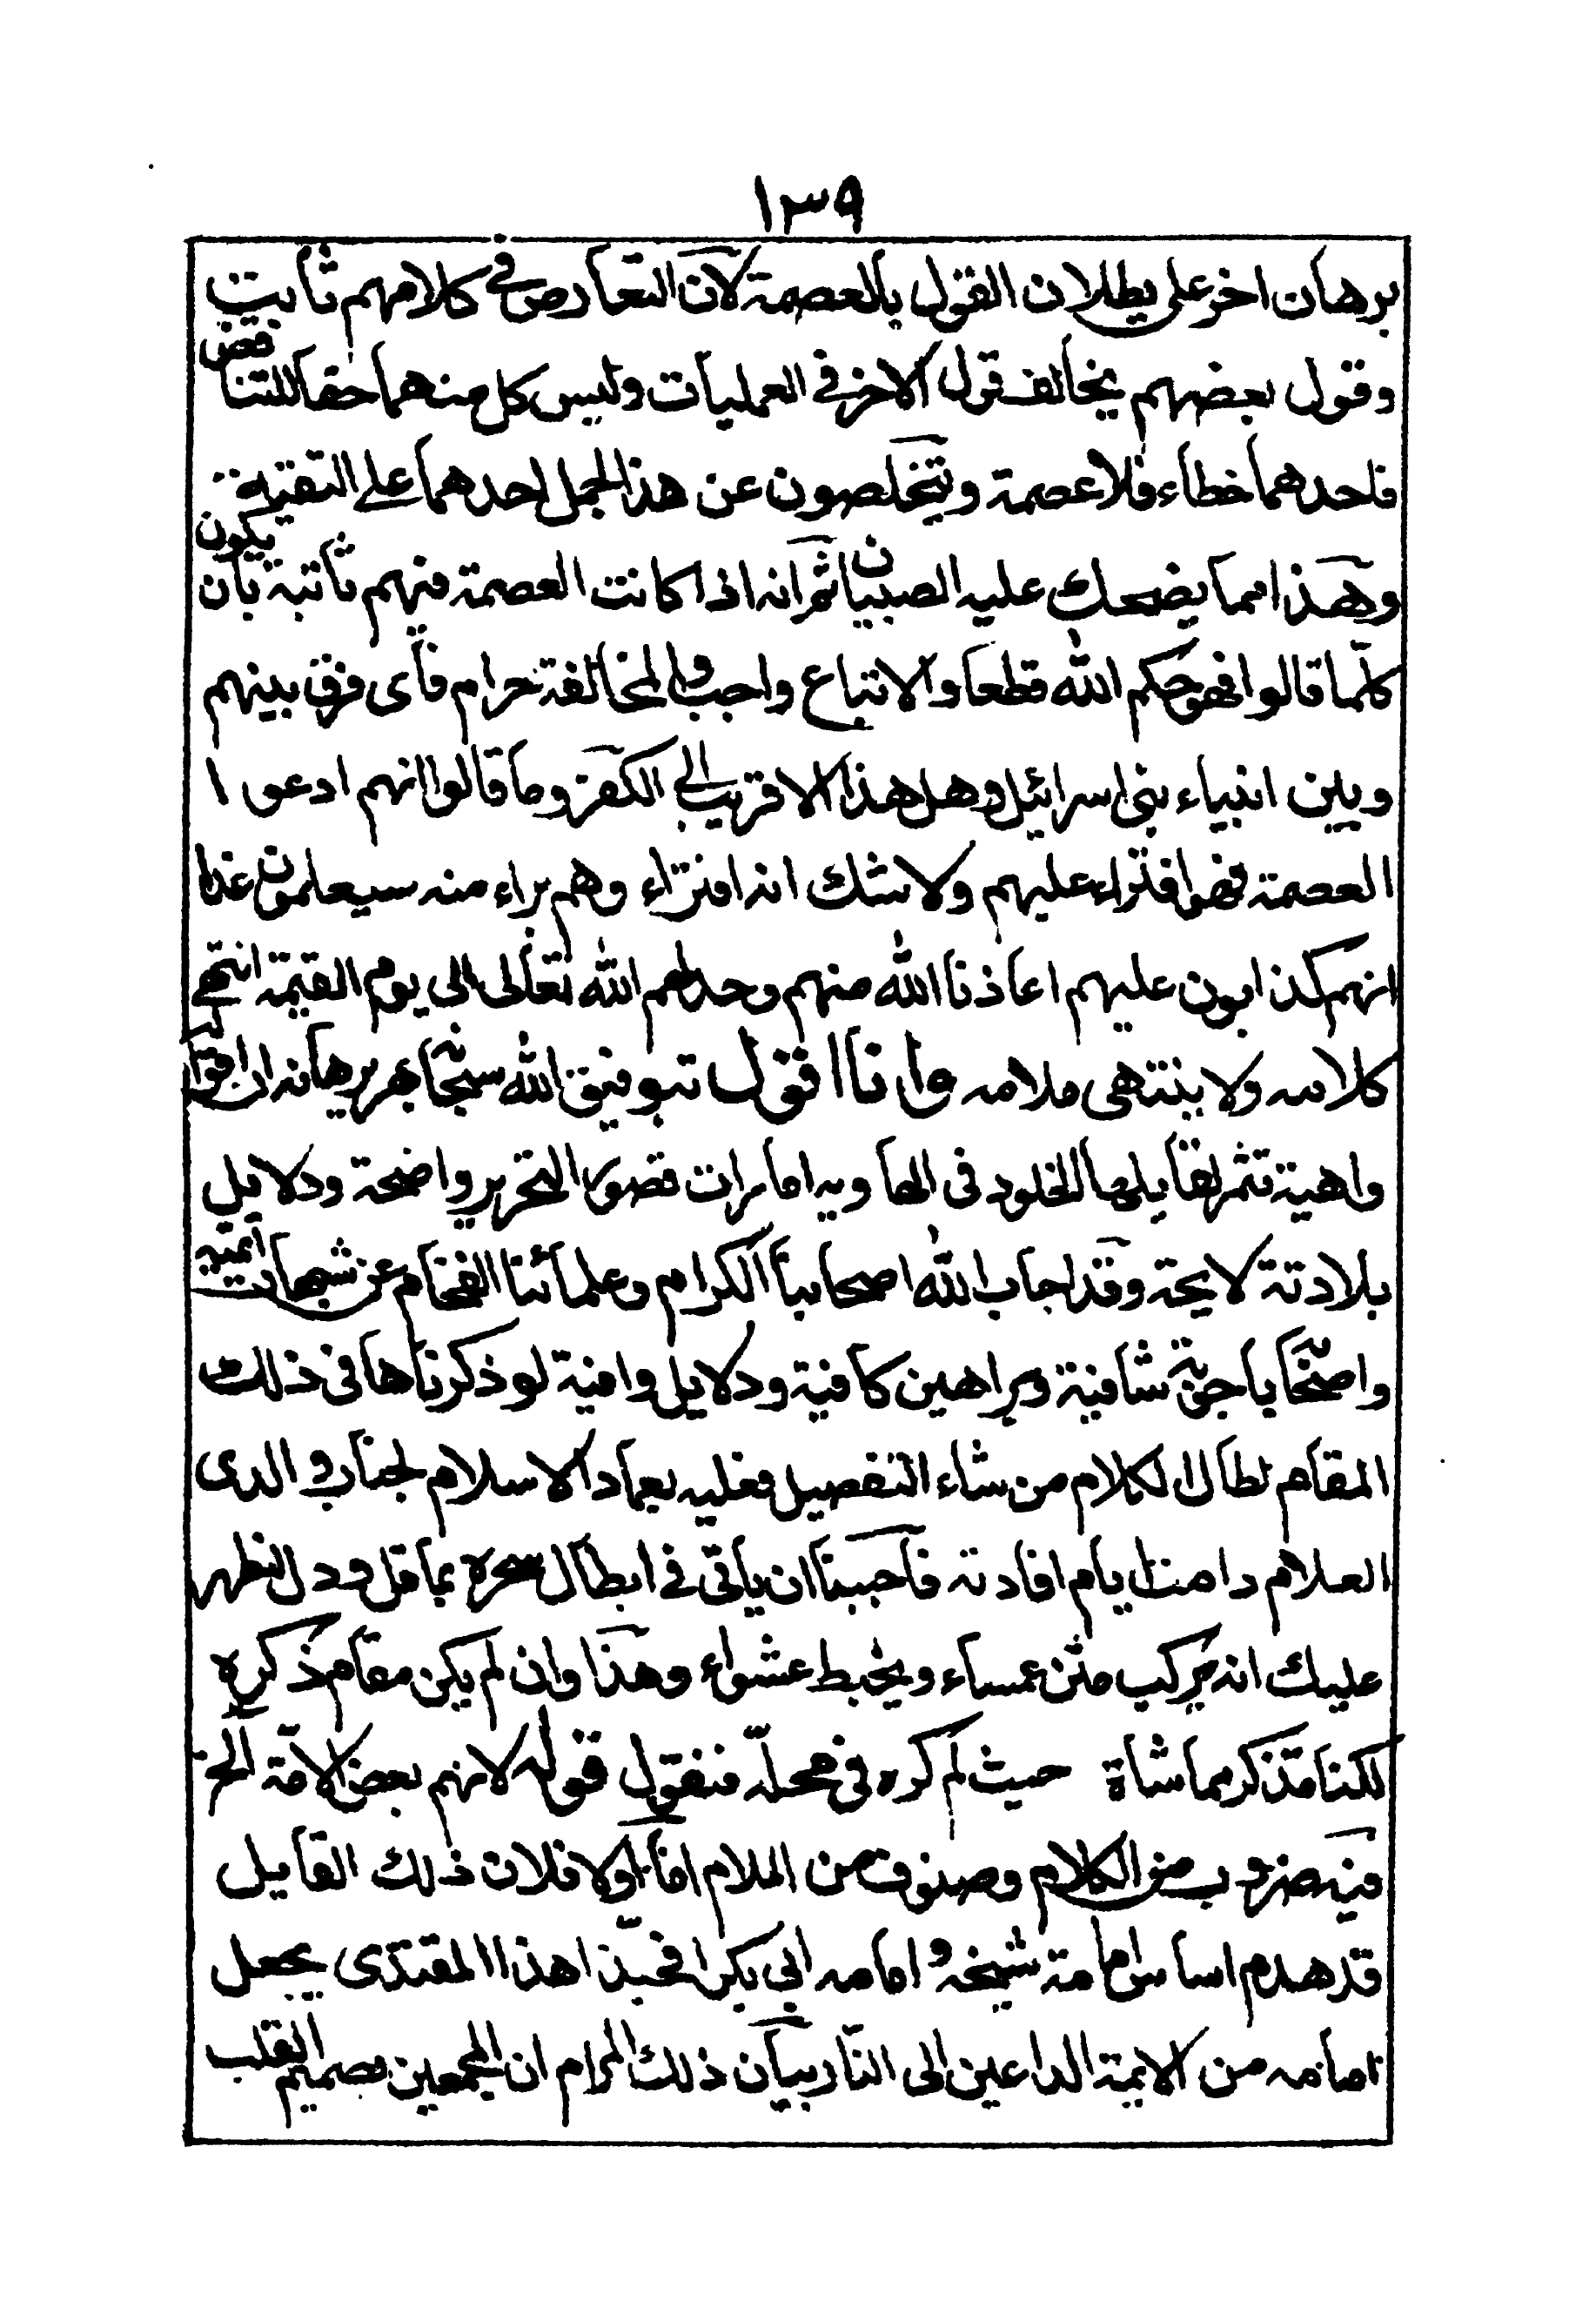 ١٣٩
برهان اخر على بطلان القول بالعصمة لان التعارض في كلامهم ثابت
وقول بعضهم يخالف قول الاخر في العمليات وليس كل منهما حقا للتناقض
فاحدهما خطاء فلا عصمة ويتخلصون عن هذا الحمل احدهما على التقية
وهذا مما يضحك عليه الصبيان ثم انه اذا كانت العصمة فيهم ثابتة بان يكون
كلما قالوا فهو حكم الله قطعا والاتباع واجب والمخالفة حرام فاى فرق بينهم
وبين انبياء بنى اسرائيل وهل هذا الا قريب الى الكفر وما قالوا انهم ادعوا
العصمة فهو افتراء عليهم ولا شك انه افتراء وهم براء منه سيعلمون غدا
انهم كذابون عليهم اعاذنا الله منهم وخذلهم الله تعالى الى يوم القيمة انتهى
كلامه ولا ينتهى ملامه وانا اقول بتوفيق الله سبحانه
واهية تثمر لقايلها الخلود فى الهاويه امارات قصور التحرير واضحة ودلايل
بلادتة لايحة وقد اجاب الله اصحابنا الكرام وعلمائنا الفخام عن شبهات ائمتيه
واصحابه باجوبة شافية وبراهين كافية ودلايل وافية لو ذكرناها فى ذلك
المقام لطال الكلام من شاء التفصيل فعليه بعماد الاسلام لجناب والدى
العلام دامت ايام افادته فاحببنا ان ياتى فى ابطال سحره بما قل ودل ليظهر
عليك انه يركب متن عمياء ويخبط عشواء وهذا وان لم يكن مقام ذكره
لكنا نذكر مماشاة حيث ذكره فى محله فنقول قوله لانهم بعض الامة الخ
فيه ضروب من الكلام وصنوف من الملام اما اولا فلان ذلك القايل
قد هدم اساس امامة شيخه وامامه ابي بكر فحبذا هذا المقتدى يجعل
امامه من الايمة الداعين الى النار بيان ذلك المرام ان المجمعين بصميم القلب